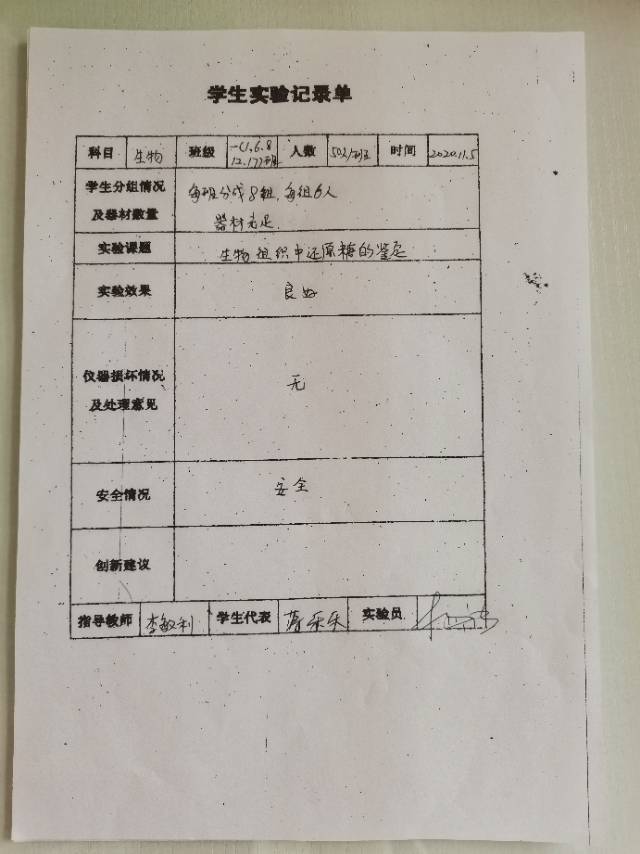 学生实验记录单
科目 生物 班级 一(1,6,8 人数 50人/班 时间 2020.11.5
12,17)班
学生分组情况 每班分成8组,每组6人
及器材数量 器材充足
实验课题 生物组织中还原糖的鉴定
实验效果 良好
仪器损坏情况 无
及处理意见
安全情况 安全
创新建议
指导教师 李敏利 学生代表 蒋乐乐 实验员